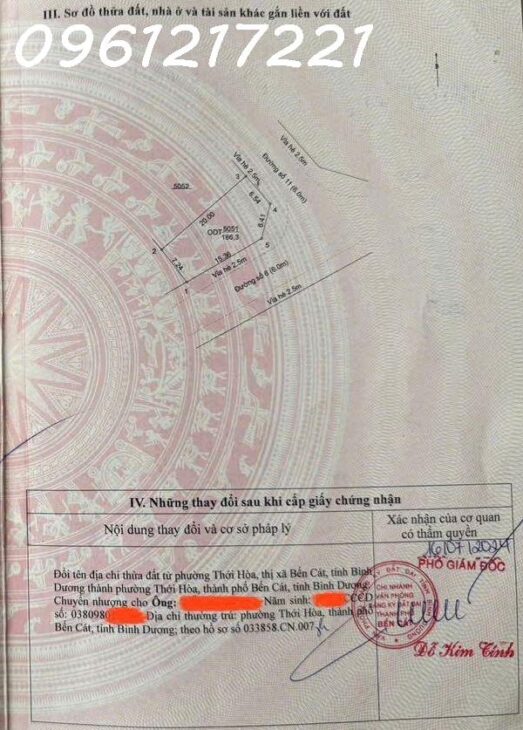 III. Sơ đồ thửa đất, nhà ở và tài sản khác gắn liền với đất
0961217221
Vỉa hè 2.5m
Đường số 11 (6.0m)
Vỉa hè 2.5m
5052
3
6.54
4
20.00
ODT
5051
166.3
6.41
5
2
7.24
15.36
1
Vỉa hè 2.5m
Đường số 6 (6.0m)
Vỉa hè 2.5m
IV. Những thay đổi sau khi cấp giấy chứng nhận
Nội dung thay đổi và cơ sở pháp lý
Xác nhận của cơ quan
có thẩm quyền
Đổi tên địa chỉ thửa đất từ phường Thới Hòa, thị xã Bến Cát, tỉnh Bình
Dương thành phường Thới Hòa, thành phố Bến Cát, tỉnh Bình Dương.
Chuyển nhượng cho Ông: Năm sinh: CCCD
số: 0380980 Địa chỉ thường trú: phường Thới Hòa, thành phố
Bến Cát, tỉnh Bình Dương; theo hồ sơ số 033858.CN.007
16/07/2024
PHÓ GIÁM ĐỐC
CHI NHÁNH
VĂN PHÒNG
ĐĂNG KÝ ĐẤT ĐAI
THÀNH PHỐ
BẾN CÁT
Đỗ Kim Tính